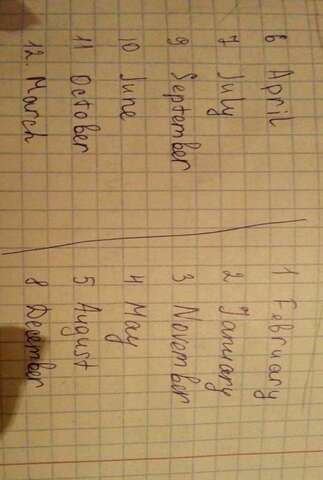 6 April
7 July
9 September
10 June
11 October
12. March
1 February
2 January
3 November
4 May
5 August
8 December